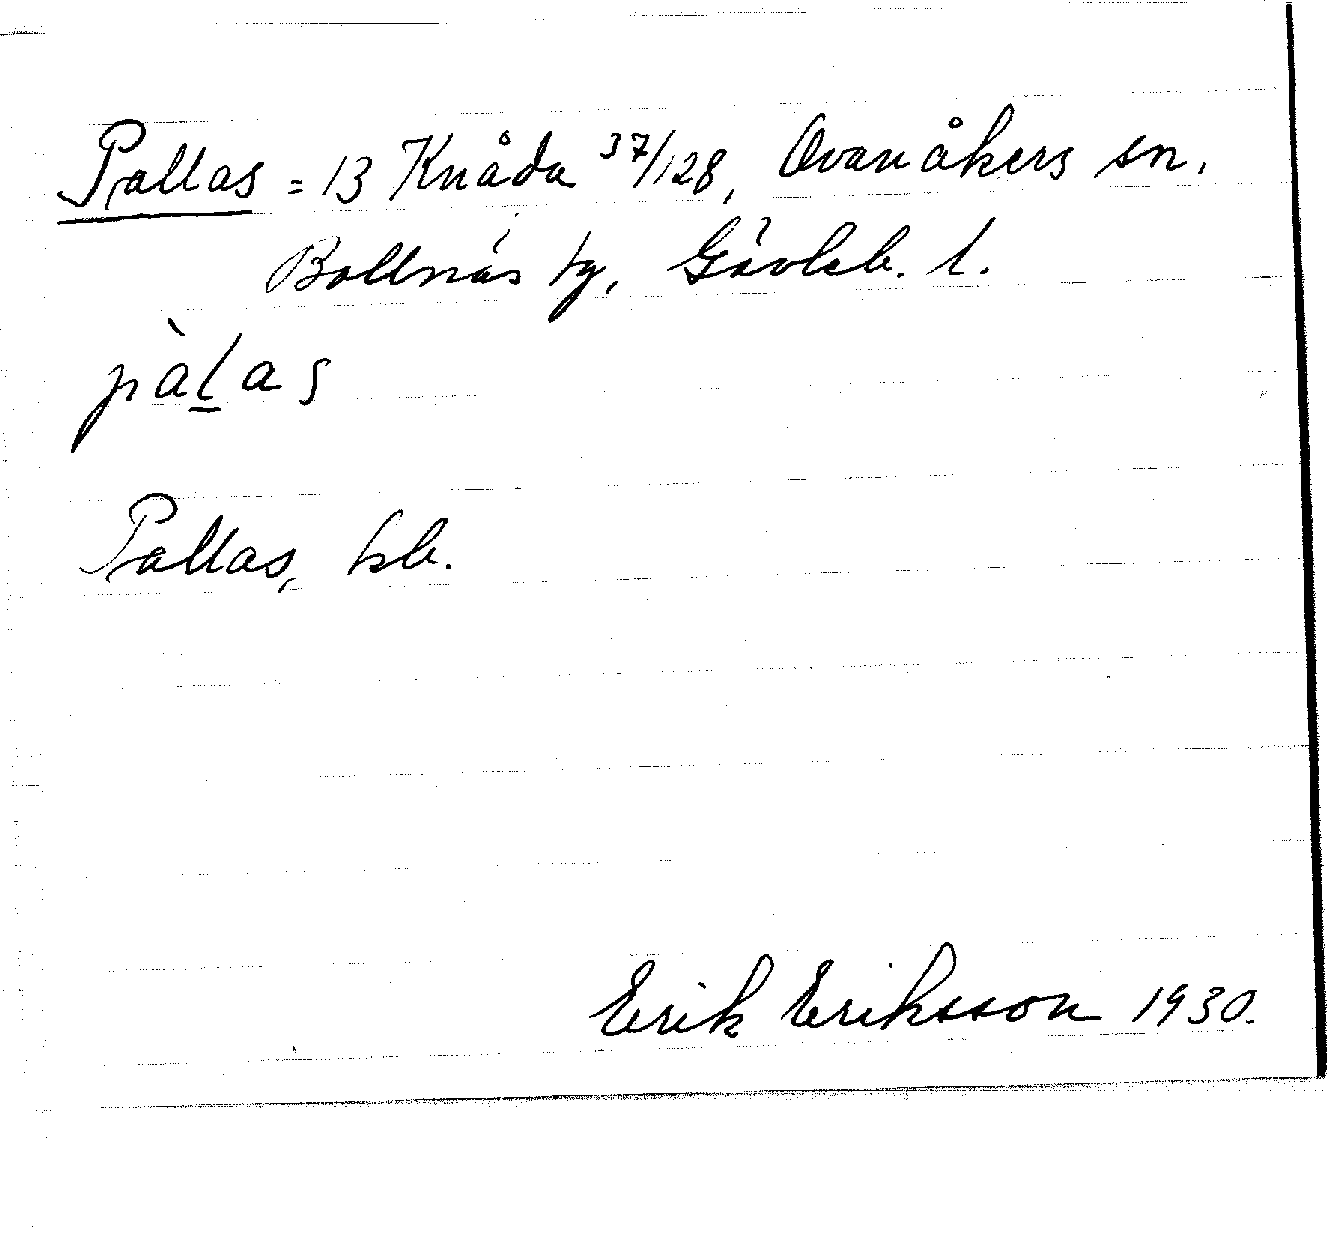 Pallas = 13 Knåda 37/128, Ovanåkers sn.
Bollnäs tg, Gävleb. l.
pàl̲as
Pallas, hb.
Erik Eriksson 1930.